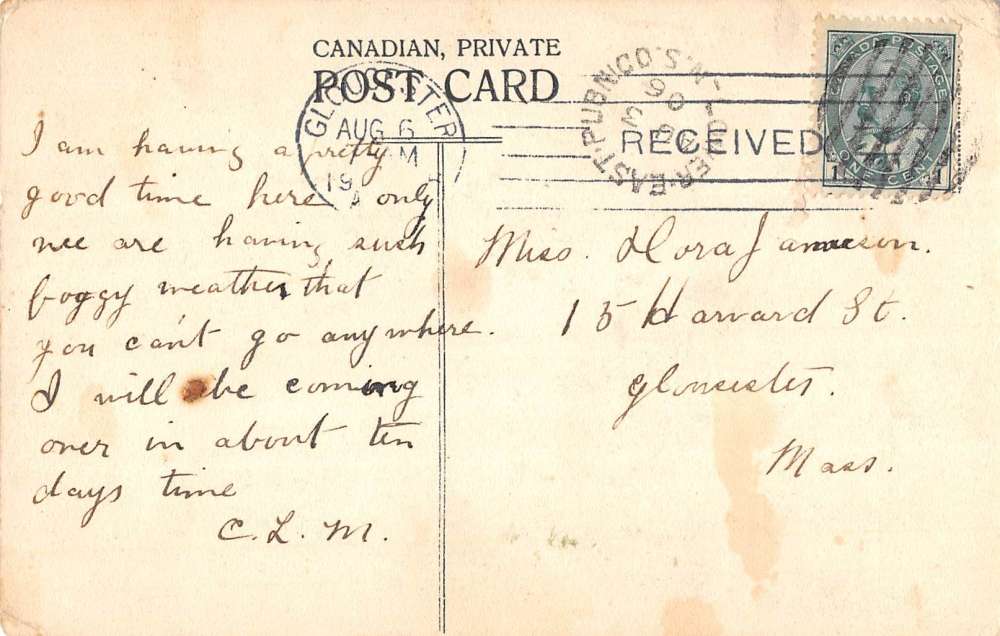 CANADIAN, PRIVATE
POST CARD
GLOUCESTER
AUG 6
M
19
RECEIVED
LOWER EAST PUBNICO. N.S.
06
CANADA POSTAGE
1 ONE CENT 1
I am having a pretty
good time here only
wee are having such
foggy weather that
you can't go anywhere.
I will be coming
over in about ten
days time
C. L. M.
Miss. Dora Jameson.
15 Harvard St.
Gloucester.
Mass.